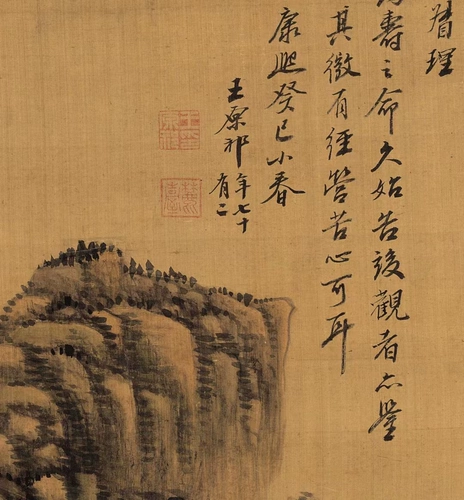 理
壽之命久始告竣觀者亦鑒
其微有經營苦心可耳
康熙癸巳小春
王原祁年七十
有二